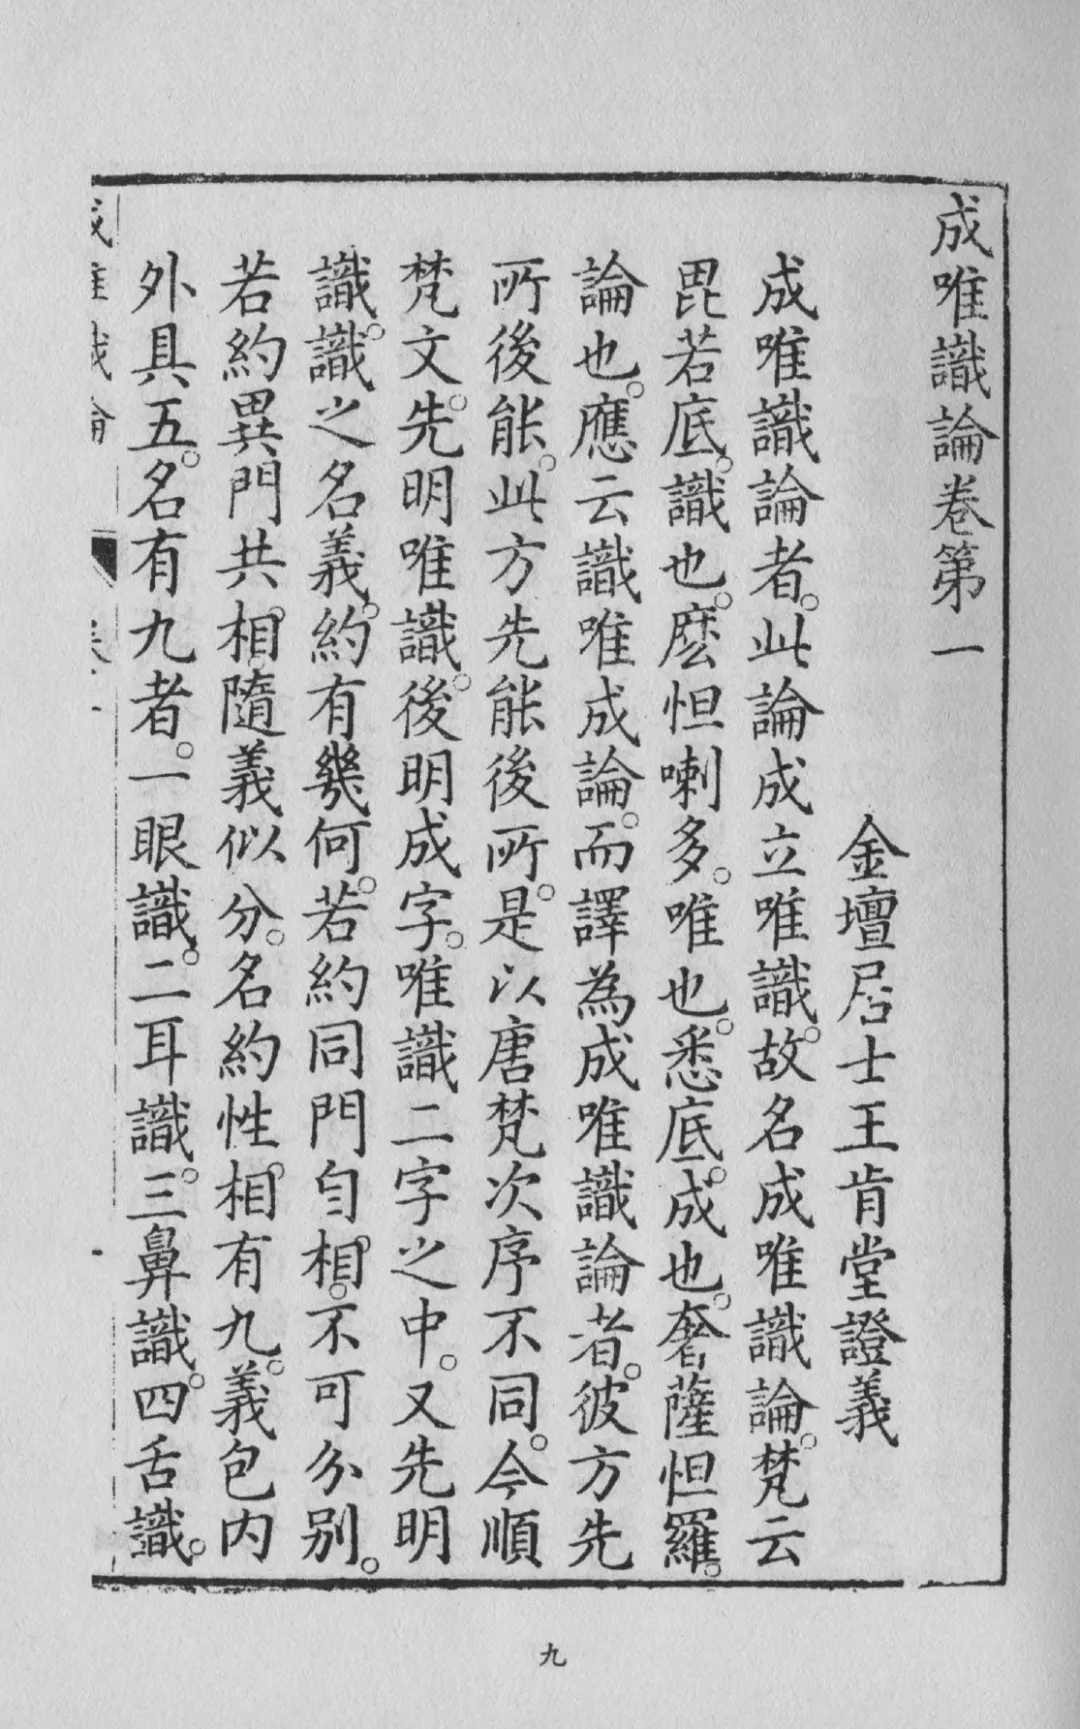 成唯識論卷第一
金壇居士王肯堂證義
成唯識論者。此論成立唯識。故名成唯識論。梵云
毘若底。識也。麽怛喇多。唯也。悉底。成也。奢薩怛羅。
論也。應云識唯成論。而譯為成唯識論者。彼方先
所後能。此方先能後所。是以唐梵次序不同。今順
梵文。先明唯識。後明成字。唯識二字之中。又先明
識。識之名義。約有幾何。若約同門自相。不可分別。
若約異門共相。隨義似分。名約性相。有九。義包内
外具五。名有九者。一眼識。二耳識。三鼻識。四舌識。
成唯識論
卷一
一
九